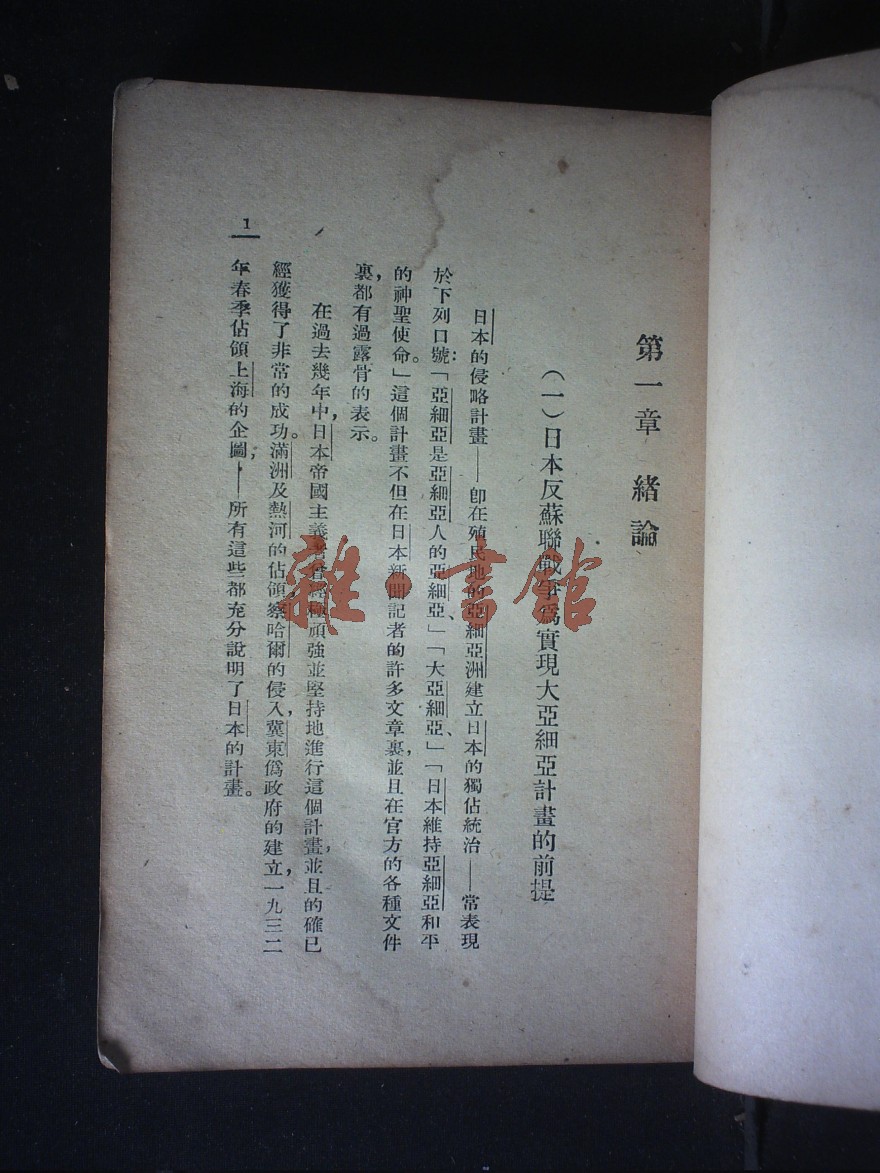 第一章　緒論
(一)日本反蘇聯戰爭爲實現大亞細亞計畫的前提
日本的侵略計畫——卽在殖民地的亞細亞洲建立日本的獨佔統治——常表現
於下列口號：「亞細亞是亞細亞人的亞細亞」、「大亞細亞」、「日本維持亞細亞和平
的神聖使命。」這個計畫不但在日本新聞記者的許多文章裏，並且在官方的各種文件
裏，都有過露骨的表示。
在過去幾年中，日本帝國主義者曾經極頑強並堅持地進行這個計畫，並且的確已
經獲得了非常的成功。滿洲及熱河的佔領，察哈爾的侵入，冀東僞政府的建立，一九三二
年春季佔領上海的企圖，——所有這些都充分說明了日本的計畫。
1
雜·書館